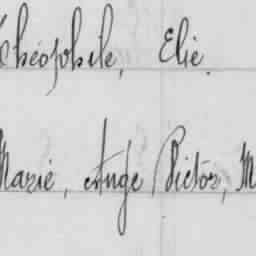 Théophile, Elie.
Marie, Ange Victor, M